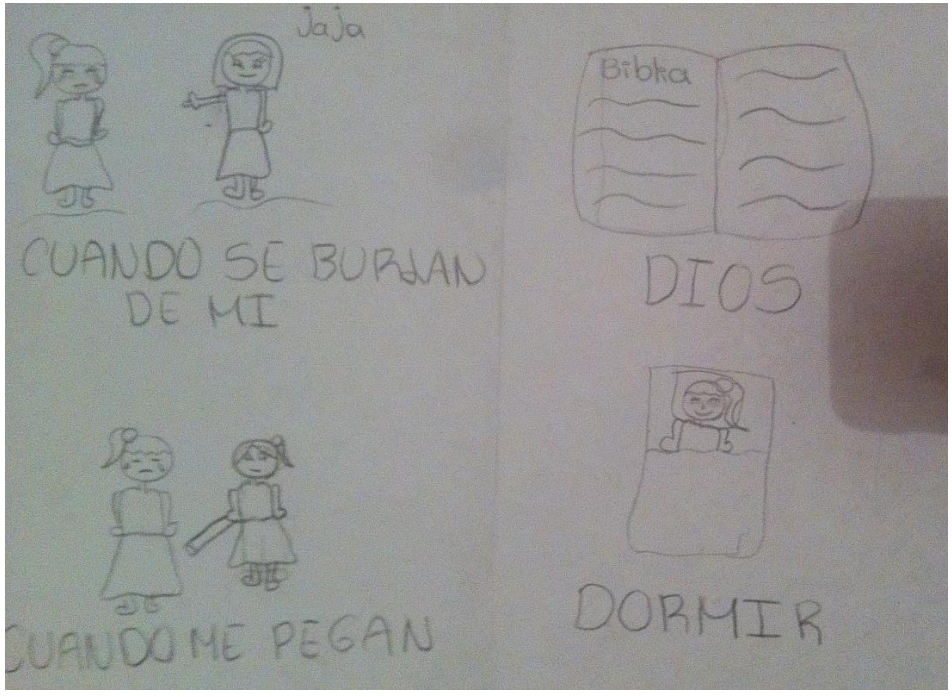 jaja
CUANDO SE BURLAN
DE MI
CUANDO ME PEGAN
Biblia
DIOS
DORMIR